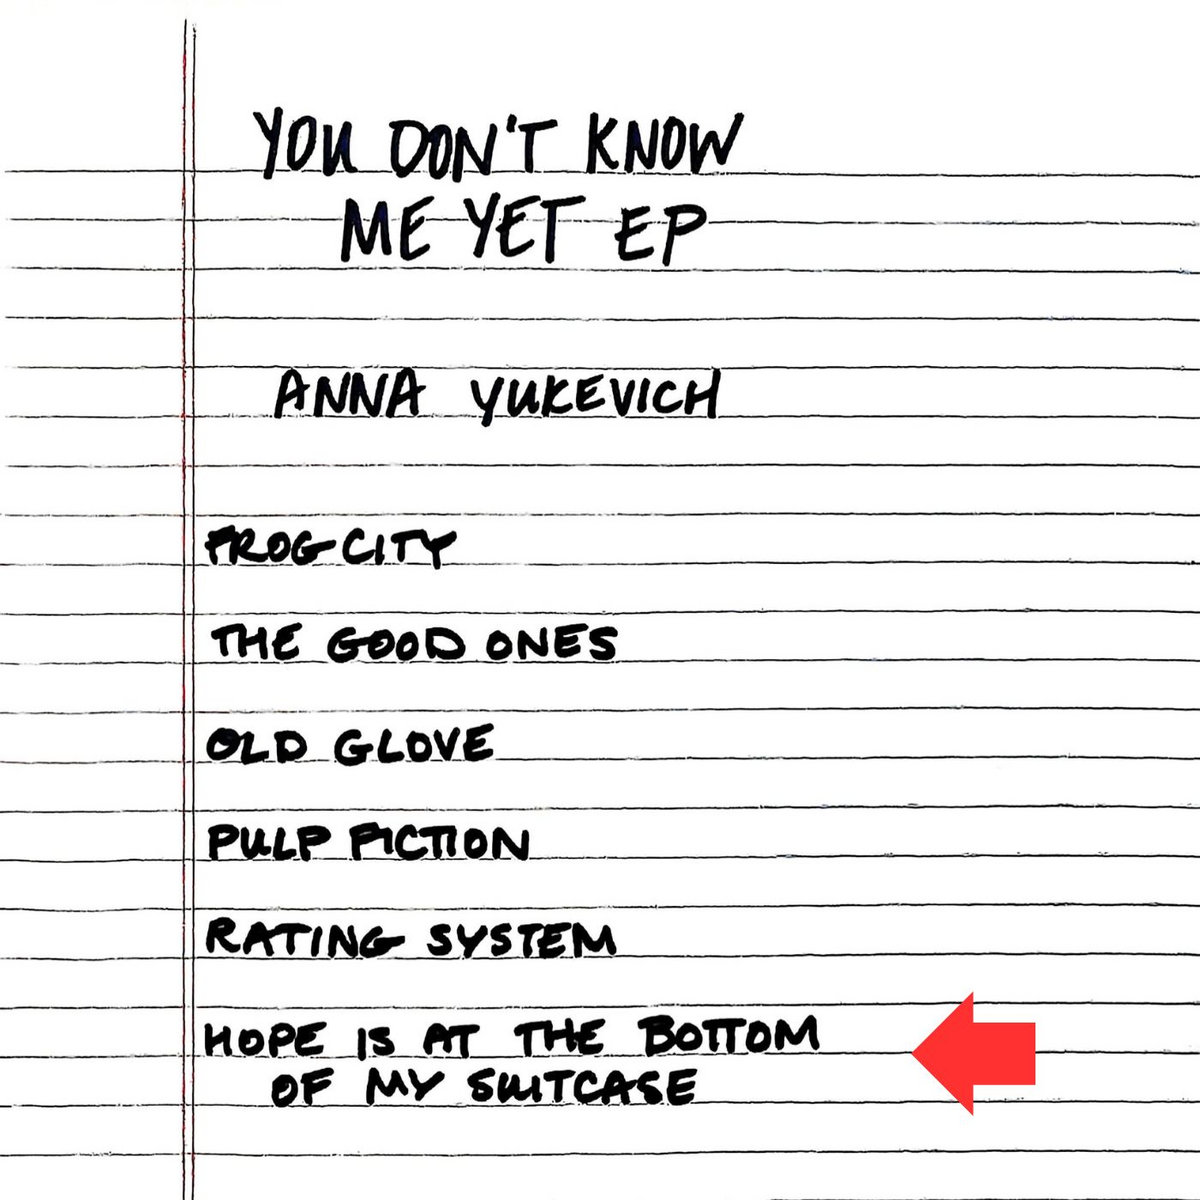 YOU DON'T KNOW
ME YET EP
ANNA YUKEVICH
FROG CITY
THE GOOD ONES
OLD GLOVE
PULP FICTION
RATING SYSTEM
HOPE IS AT THE BOTTOM
OF MY SUITCASE